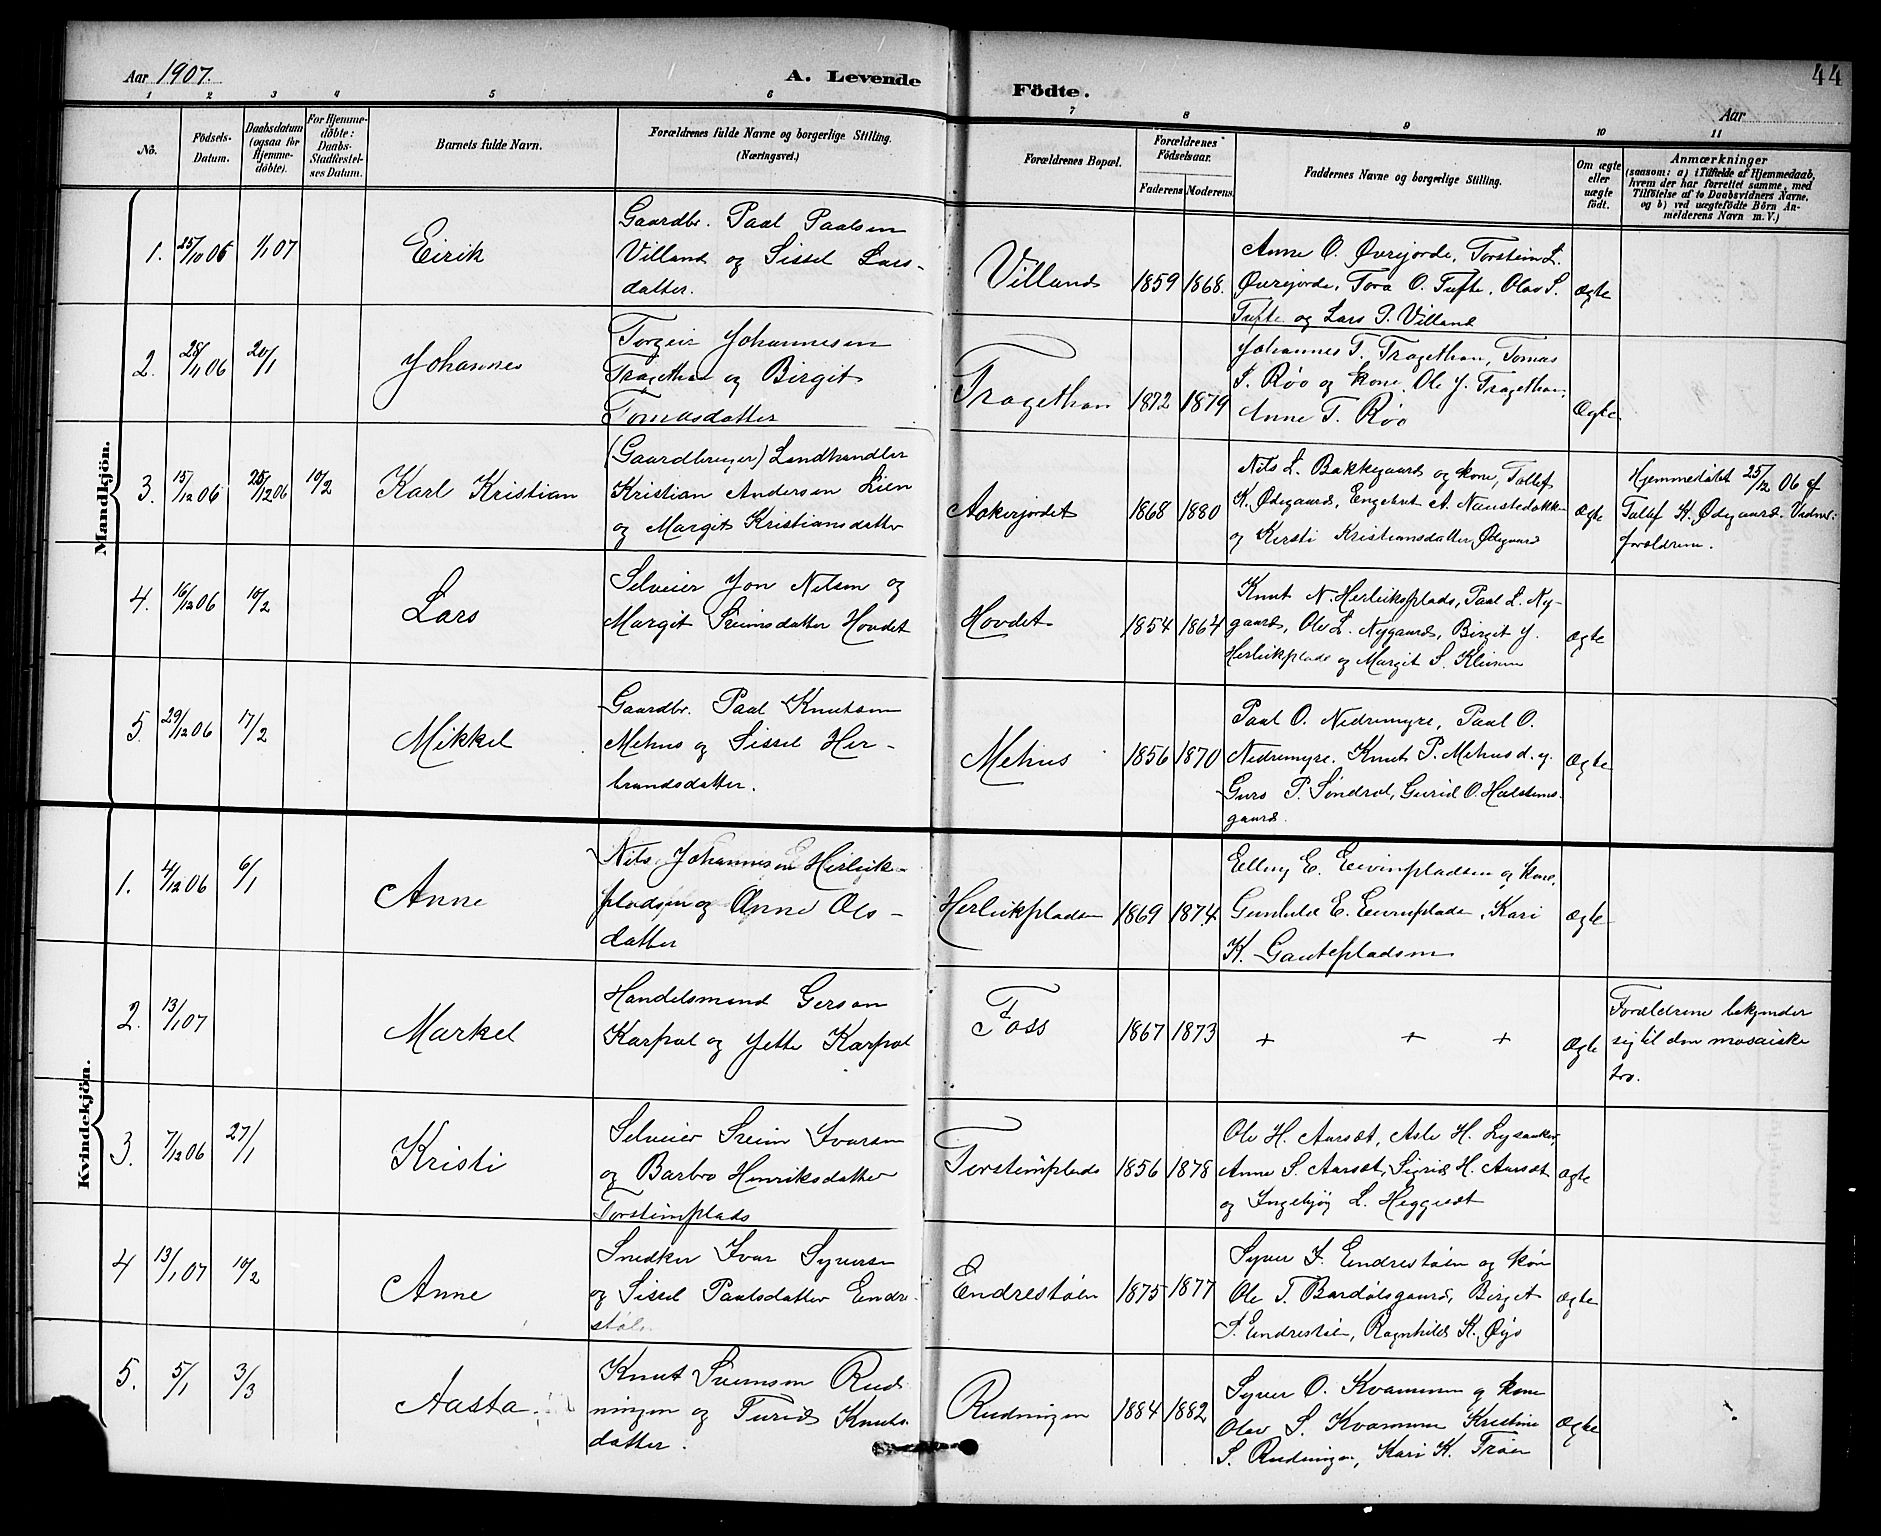 Aar 1907.
A. Levende
Födte.
Aar
44
1 2 3 4 5 6 7 8 9 10 11
No.
Födsels-
Datum.
Daabsdatum
(ogsaa for
Hjemme-
döbte).
For Hjemme-
döbte:
Daabs-
Stadfæstel-
ses Datum.
Barnets fulde Navn.
Forældrenes fulde Navne og borgerlige Stilling.
(Næringsvei.)
Forældrenes Bopæl.
Forældrenes
Födselsaar.
Faderens. Moderens.
Faddernes Navne og borgerlige Stilling.
Om ægte
eller
uægte
födt.
Anmærkninger
(saasom: a) i Tilfælde af Hjemmedaab,
hvem der har forrettet samme, med
Tilföielse af to Daabsvidners Navne,
og b) ved uægtefödte Börn An-
melderens Navn m. V.)
Mandkjön.
1. 25/10 06 1/1 07
Eirik
Gaardbr. Paal Paalsen
Villand og Sissel Lars-
datter.
Villand
1859 1868.
Anne O. Øvrejorde, Torstein L.
Øvrejorde, Tora O. Tufte, Olav S.
Tufte og Lars P. Villand
Ægte
2. 28/11 06 20/1
Johannes
Torgeir Johannesen
Tragethon og Birgit
Tomasdatter
Tragethon
1872 1879
Johannes T. Tragethon, Tomas
S. Røo og kone, Ole J. Tragethon,
Anne T. Røo
Ægte
3. 15/12 06 25/12 06 10/2
Karl Kristian
(Gaardbruger) Landhandler
Kristian Andersen Lien
og Margit Kristiansdatter
Aakerjordet
1868 1880
Nils L. Bakkegaard og kone, Tollef
K. Ødegaard, Engebret A. Naustebakk
og Kirsti Kristiansdatter Ødegaard
Ægte
Hjemmedøbt 25/12 06 af
Tollef K. Ødegaard. Vidner:
forældrene.
4. 16/12 06 10/2
Lars
Selveier Jon Nilsen og
Margit Sveinsdatter Hovdet
Hovdet
1854 1864
Knut N. Herleiksplads, Paal L. Ny-
gaard, Ole L. Nygaard, Birgit J.
Herleikplads og Margit S.
Ægte
5. 29/12 06 17/2
Mikkel
Gaardbr. Paal Knutsen
Mehus og Sissel Her-
brandsdatter.
Mehus
1856 1870
Paal O. Nedremyre, Paal O.
Nedremyre, Knut P. Mehus d. y.
Guro P. Søndrol, Gurid O. Halsteins-
gaard.
Ægte
Kvindekjön.
1. 4/12 06 6/1
Anne
Nils Johannesen Herleik-
pladsen og Anne Ols-
datter
Herleikpladsen
1869 1874.
Elling E. Eivinpladsen og kone,
Gunhild E. Eivinpladsen, Kari
K. Gautepladsen
Ægte
2. 13/1 07
Markel
Handelsmand Gerson
Karpol og Jette Karpol
Foss
1867 1873
+ + +
Ægte
Forældrene bekjender
sig til den mosaiske
tro.
3. 7/12 06 27/1
Kristi
Selveier Svein Ivarsen
og Barbro Henriksdatter
Torsteinplads
Torsteinplads
1856 1878
Ole H. Aarsæt, Asle H. Lysaaker,
Anne S. Aarsæt, Sigrid H. Aarsæt
og Ingebjøg L. Heggesæt
Ægte
4 13/1 07 10/2
Anne
Snedker Ivar Syversen
og Sissel Paalsdatter Endre-
støen
Endrestøen
1875 1877
Syver I. Endrestøen og kone
Ole T. Bardølsgaard, Birgit
S. Endrestøen, Ragnhild K. Øijo
Ægte
5. 5/1 3/3
Aasta
Knut Sveinsen Rud-
ningen og Turid Knuts-
datter.
Rudningen
1884 1882
Syver O. Kvammen og kone
Olav S. Kvammen Kristine
S. Rudningen, Kari K. Trøen
Ægte